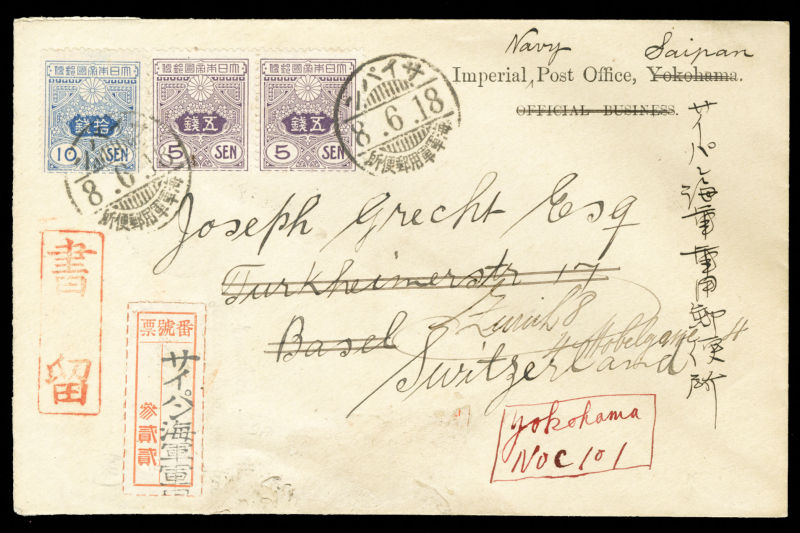 Navy Saipan
Imperial, Post Office, Yokohama.
OFFICIAL BUSINESS.
サイパン海軍軍用郵便所
大日本帝國郵便
拾錢
10 SEN
大日本帝國郵便
五錢
5 SEN
大日本帝國郵便
五錢
5 SEN
サイパン
8.6.18
海軍軍用郵便所
8.6.18
海軍軍用郵便所
Joseph Grecht Esq
Turkheimerstr 17
Basel
Zurich 8
4
Switzerland
書留
番號票
サイパン海軍軍用
參貳貳
Yokohama
No C 101